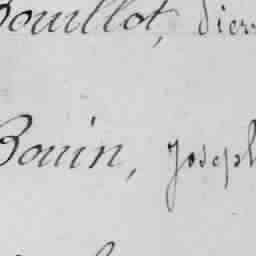 Bouillot, Pier
Bouin, Joseph